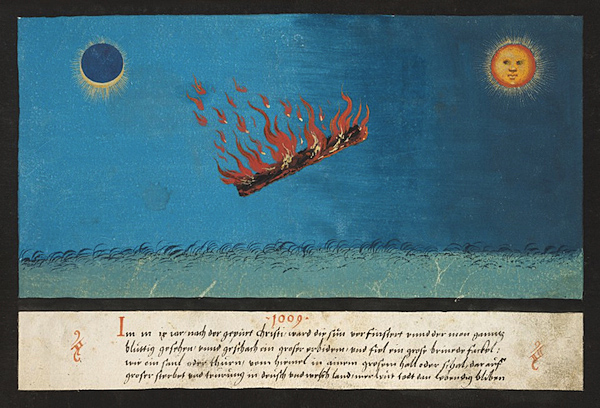 ·1009·
Im m ix iar nach der gepurt christi ward die sun verfinstert vnnd der mon ganntz
bluttig gesehen vnnd geschach ein groser erdbidem vnd fiel ein grose brinende fackel
wie ein saul oder thurn vom himel in ainem grosem hall oder schal dar auff
groser sterbet vnd teurung in deutsch vnd welsch land mer leut todt am lebendig bliben